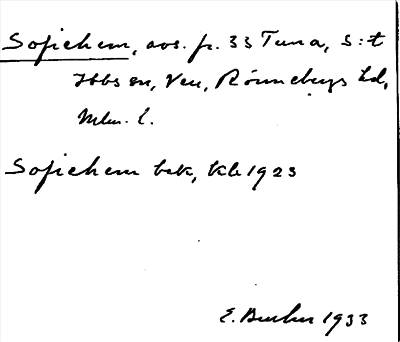 Sofiehem, avs. fr. 33 Tuna, S:t
Ibbs sn, Ven, Rönnebergs hd,
Mlm. l.
Sofiehem bek, kb 1923
E. 1933